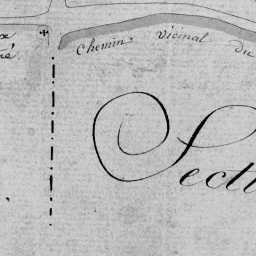 Chemin Vicinal du
Secti